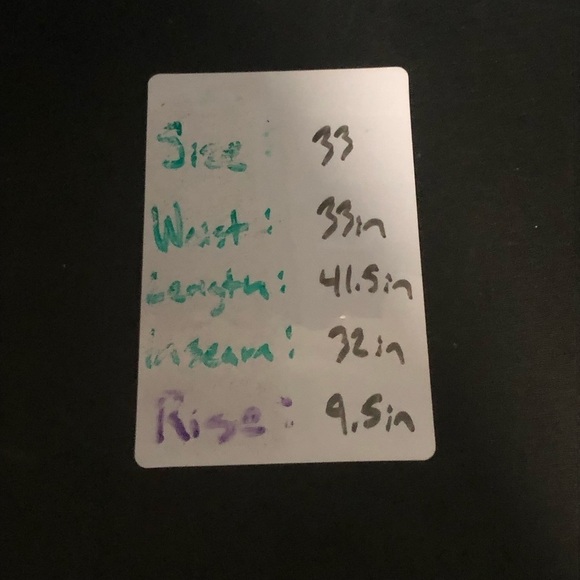 Size: 33
Waist: 33in
Length: 41.5in
inseam: 32in
Rise: 9.5in